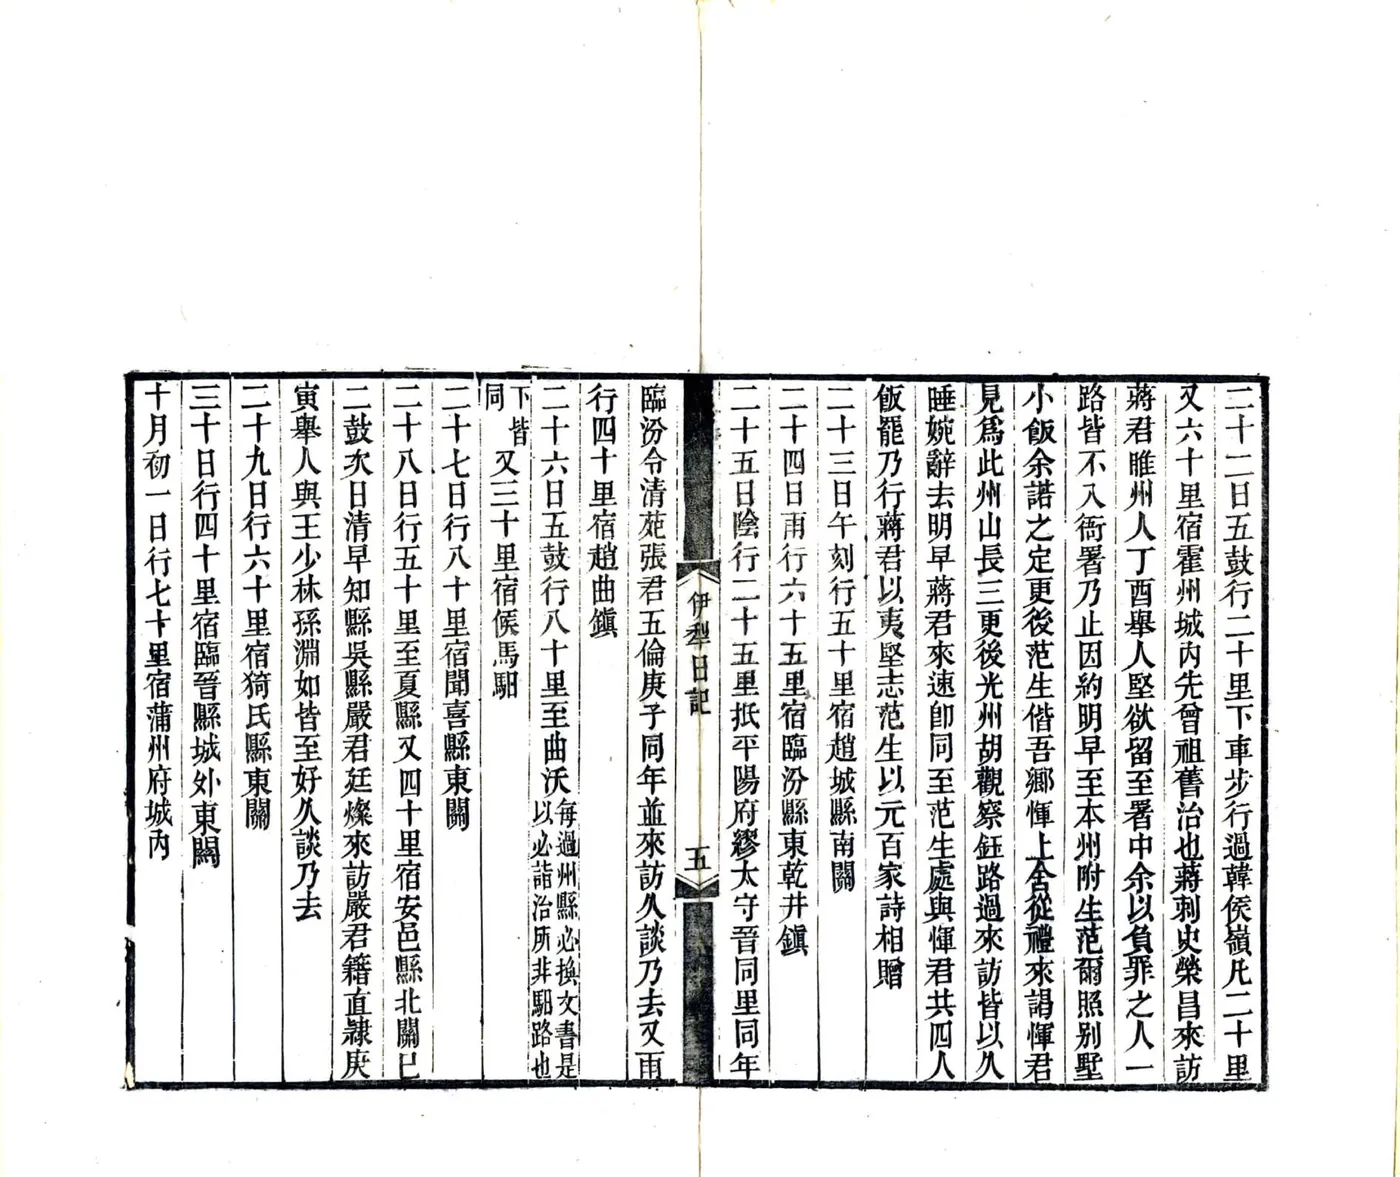 二十二日五鼓行二十里下車步行過韓侯嶺凡二十里
又六十里宿霍州城內先曾祖舊治也蔣刺史榮昌來訪
蔣君睢州人丁酉舉人堅欲留至署中余以負罪之人一
路皆不入衙署乃止因約明早至本州附生范爾照別墅
小飯余諾之定更後范生偕吾鄉惲上舍從禮來謁惲君
見爲此州山長三更後光州胡觀察鈺路過來訪皆以久
睡婉辭去明早蔣君來速卽同至范生處與惲君共四人
飯罷乃行蔣君以夷堅志范生以元百家詩相贈
二十三日午刻行五十里宿趙城縣南關
二十四日雨行六十五里宿臨汾縣東乾井鎭
二十五日陰行二十五里抵平陽府繆太守晉同里同年
伊犁日記
五
臨汾令淸苑張君五倫庚子同年並來訪久談乃去又雨
行四十里宿趙曲鎭
二十六日五鼓行八十里至曲沃每過州縣必換文書是以必詣治所非馹路也
下皆同又三十里宿侯馬馹
二十七日行八十里宿聞喜縣東關
二十八日行五十里至夏縣又四十里宿安邑縣北關已
二鼓次日淸早知縣吳縣嚴君廷燦來訪嚴君籍直隷庚
寅舉人與王少林孫淵如皆至好久談乃去
二十九日行六十里宿猗氏縣東關
三十日行四十里宿臨晉縣城外東關
十月初一日行七十里宿蒲州府城內